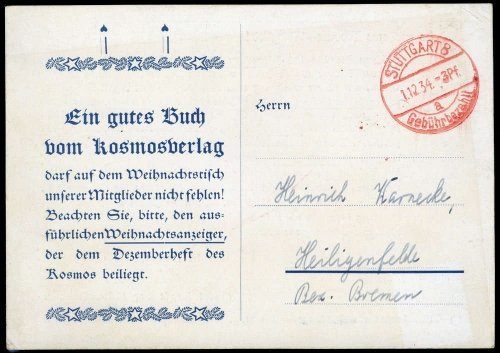 Ein gutes Buch
vom Kosmosverlag
darf auf dem Weihnachtstisch
unserer Mitglieder nicht fehlen!
Beachten Sie, bitte, den aus-
führlichen Weihnachtsanzeiger,
der dem Dezemberheft des
Kosmos beiliegt.
STUTTGART 8
1.12.34.-3Pf.
a
Gebühr bezahlt
Herrn
Heinrich Karnecke,
Heiligenfelde
Bez. Bremen